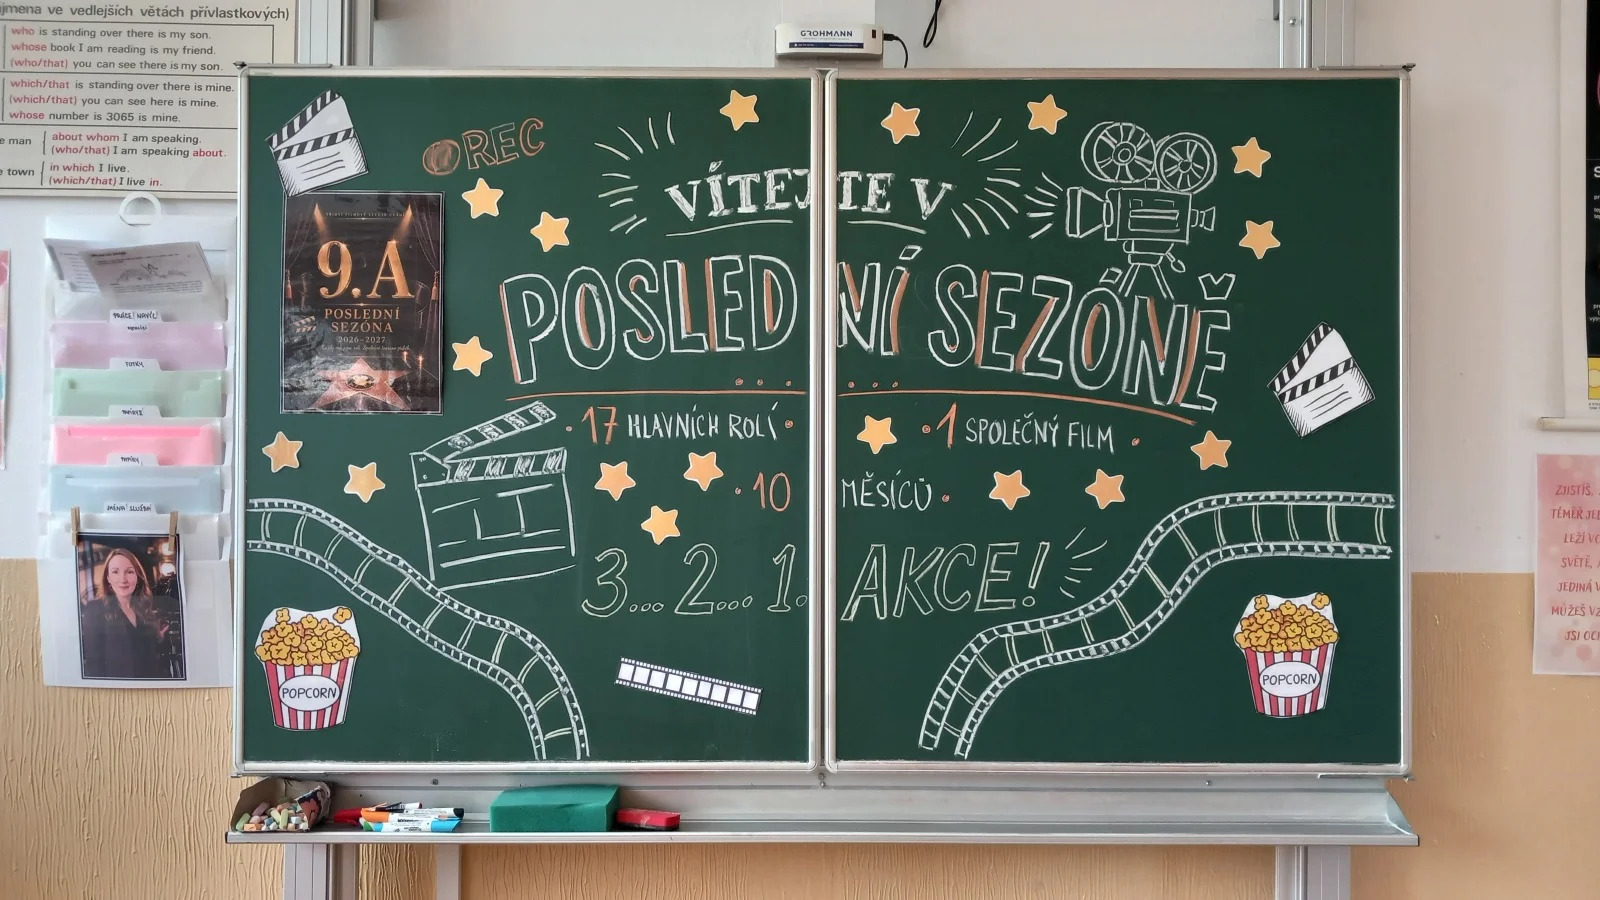 jmena ve vedlejších větách přívlastkových)
who is standing over there is my son.
whose book I am reading is my friend.
(who/that) you can see there is my son.
which/that is standing over there is mine.
(which/that) you can see here is mine.
whose number is 3065 is mine.
e man
about whom I am speaking.
(who/that) I am speaking about.
e town
in which I live.
(which/that) I live in.
GROHMANN
REC
VÍTEJTE V
POSLEDNÍ SEZÓNĚ
...
...
17 HLAVNÍCH ROLÍ
1 SPOLEČNÝ FILM
10 MĚSÍCŮ
3... 2... 1. AKCE!
9.A
POSLEDNÍ
SEZÓNA
2026-2027
FOTKY
POPCORN
POPCORN
ZJISTÍŠ,
TÉMĚŘ JED
LEŽÍ VO
SVĚTĚ, A
JEDINÁ V
MŮŽEŠ VZ
JSI OCH